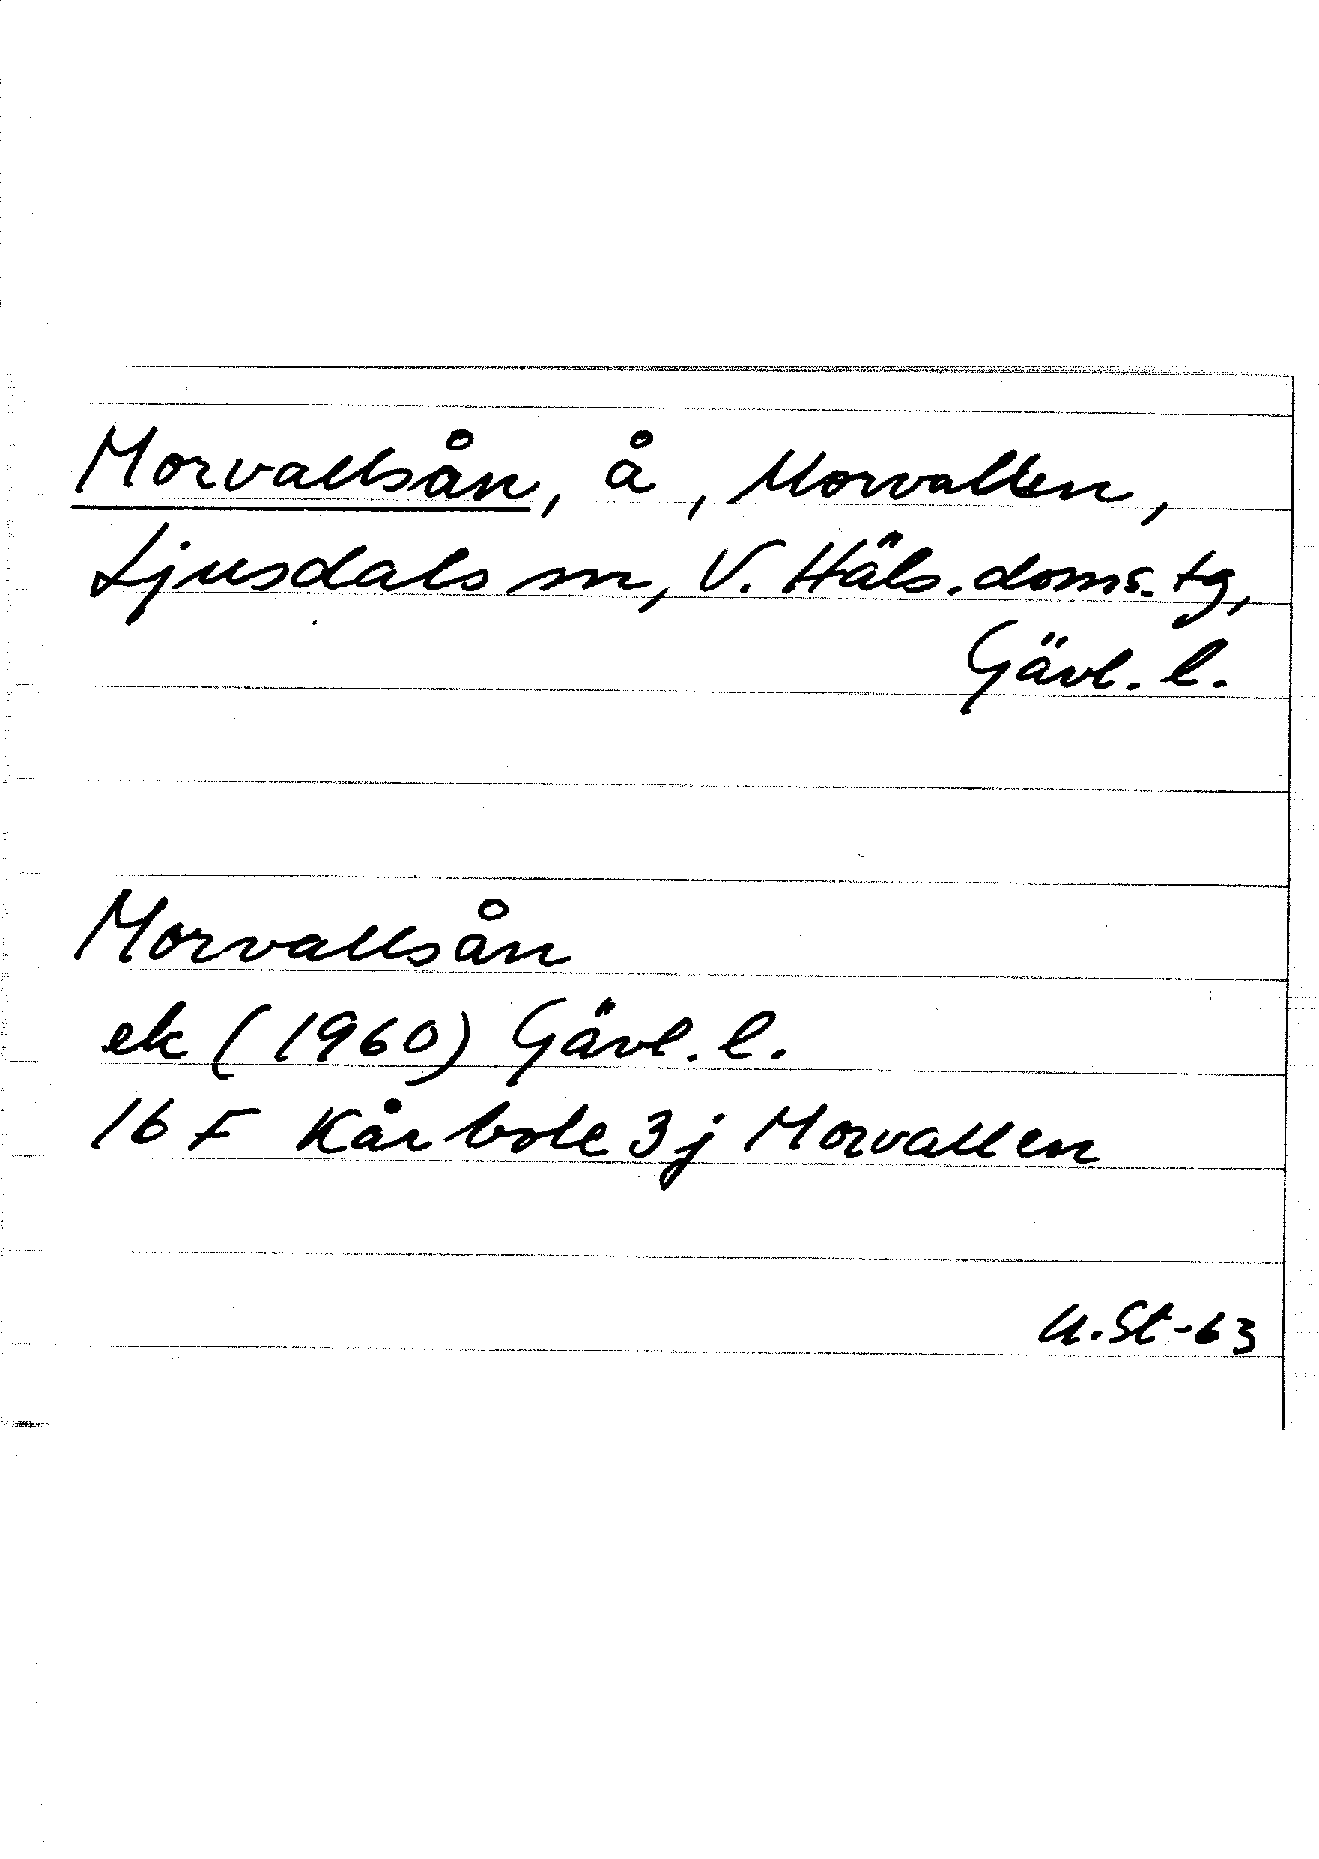 Morvallsån, å, Morvallen,
Ljusdals sn, V. Häls. doms. tg,
Gävl. l.
Morvallsån
ek (1960) Gävl. l.
16 F Kårböle 3j Morvallen
U.St-63